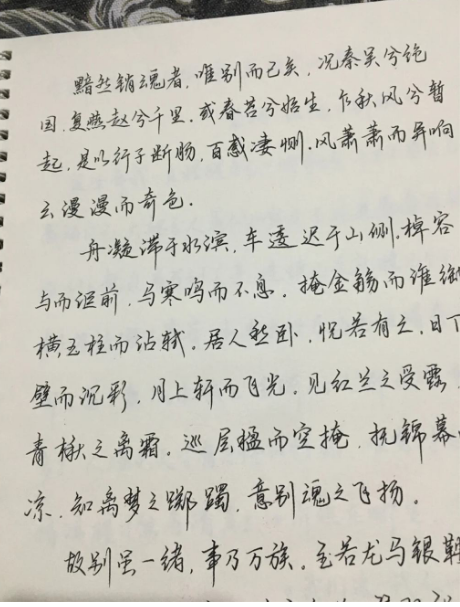 黯然销魂者，唯别而已矣，况秦吴兮绝
国，复燕赵兮千里，或春苔兮始生，乍秋风兮暂
起，是以行子断肠，百感凄恻，风萧萧而异响
云漫漫而奇色.
舟凝滞于水滨，车逶迟于山侧，棹容
与而讵前，马寒鸣而不息. 掩金觞而谁御
横玉柱而沾轼. 居人愁卧，怳若有亡，日下
壁而沉彩，月上轩而飞光，见红兰之受露
青楸之离霜. 巡层楹而空掩，抚锦幕
凉，知离梦之踯躅，意别魂之飞扬。
故别虽一绪，事乃万族. 至若龙马银鞍